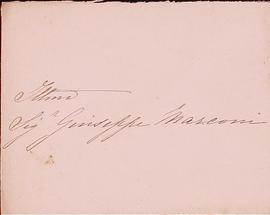 Illmo
Sigr Giuseppe Marconi